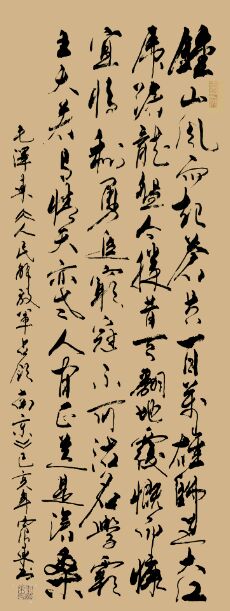 鐘山風雨起蒼黄百萬雄師過大江
虎踞龍盤今勝昔天翻地覆慨而慷
宜將剩勇追窮寇不可沽名學霸
王天若有情天亦老人間正道是滄桑
毛澤東《人民解放軍占領南京》己亥年書